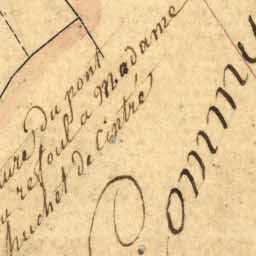 du pont
refoul a Madame
huchet de Cintré
Comm